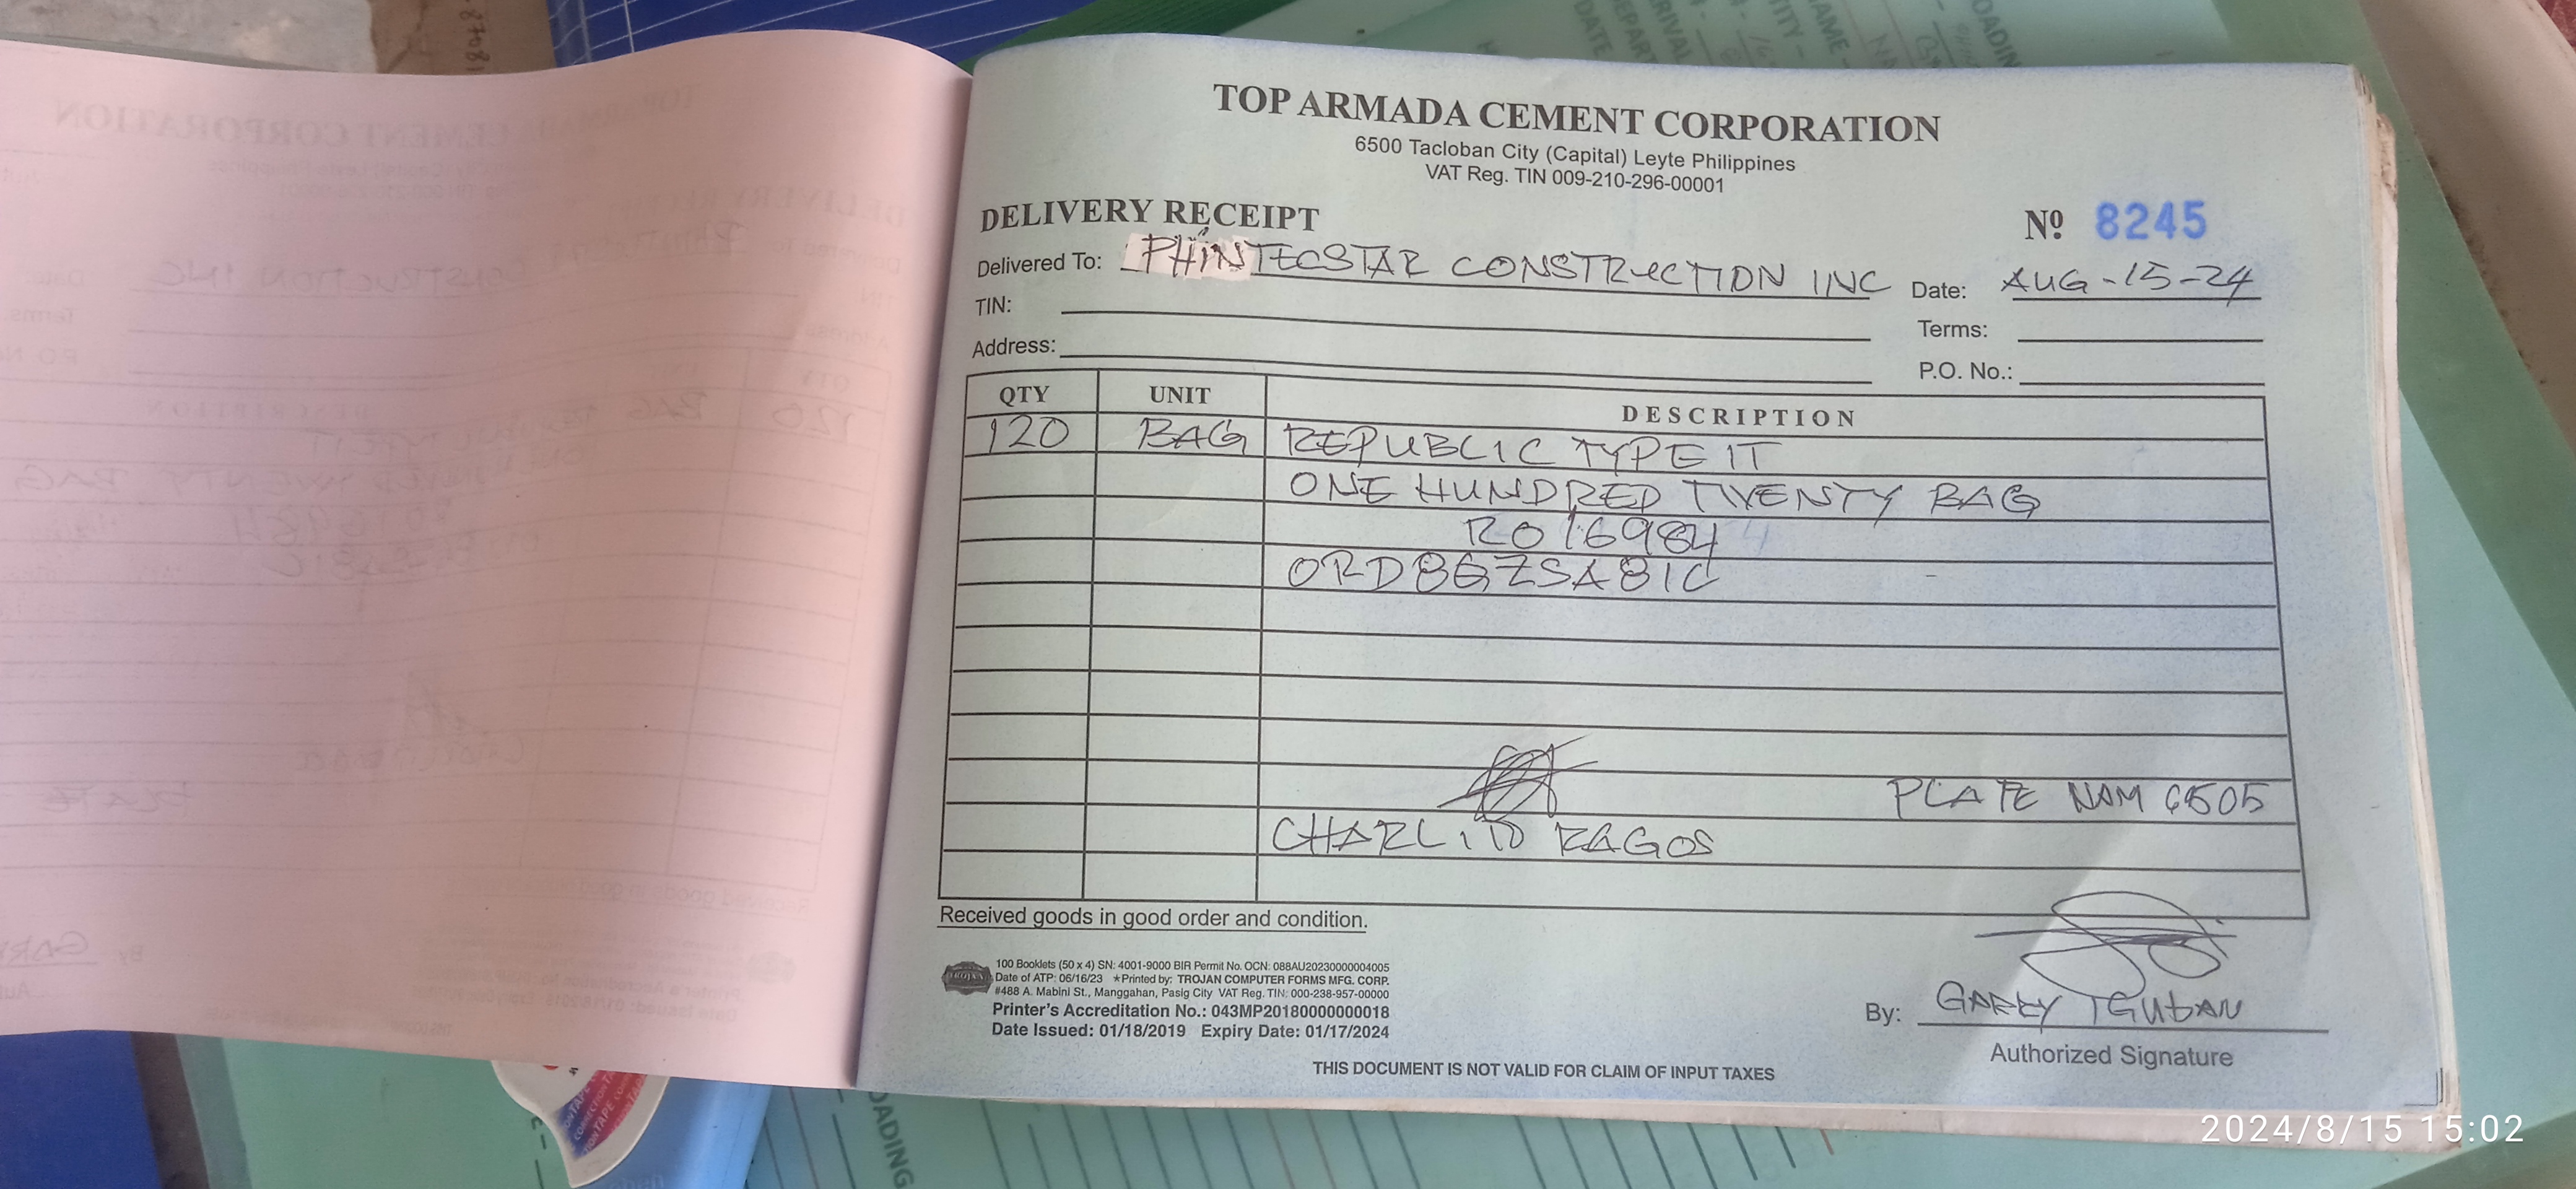 TOP ARMADA CEMENT CORPORATION
6500 Tacloban City (Capital) Leyte Philippines
VAT Reg. TIN 009-210-296-00001
DELIVERY RECEIPT
Nº 8245
Delivered To: PHINTECSTAR CONSTRUCTION INC
Date: AUG-15-24
TIN:
Terms:
Address:
P.O. No.:
QTY UNIT DESCRIPTION
120 BAG REPUBLIC TYPE IT
ONE HUNDRED TWENTY BAG
RO16984
ORD8GZSA81C
PLATE NAM 6505
CHARLITO RAGOS
Received goods in good order and condition.
TROJAN
100 Booklets (50 x 4) SN: 4001-9000 BIR Permit No. OCN: 088AU20230000004005
Date of ATP: 06/16/23 ★Printed by: TROJAN COMPUTER FORMS MFG. CORP.
#488 A. Mabini St., Manggahan, Pasig City VAT Reg. TIN: 000-238-957-00000
Printer's Accreditation No.: 043MP20180000000018
Date Issued: 01/18/2019 Expiry Date: 01/17/2024
By: GARRY
Authorized Signature
THIS DOCUMENT IS NOT VALID FOR CLAIM OF INPUT TAXES
2024/8/15 15:02